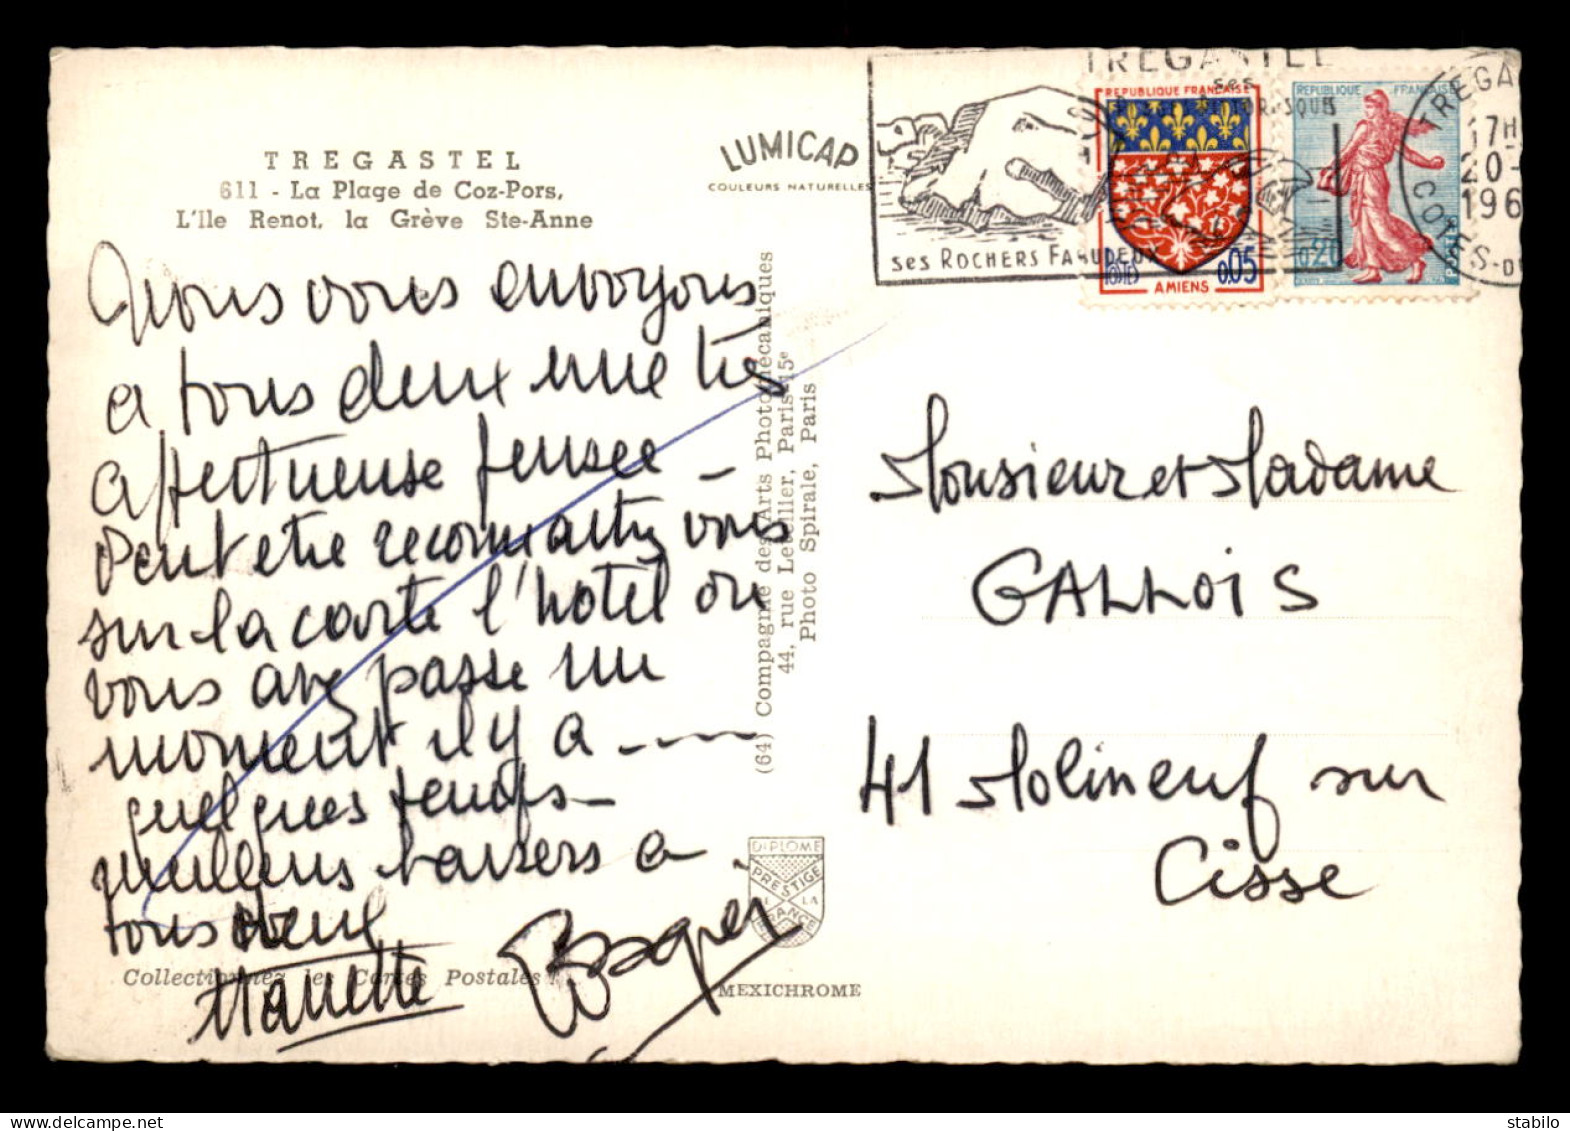 TREGASTEL
611 - La Plage de Coz-Pors,
L'Ile Renot, la Grève Ste-Anne
LUMICAP
COULEURS NATURELLES
TREGASTEL
ses
ses ROCHERS FABULEUX
REPUBLIQUE FRANÇAISE
POSTES
0,05
AMIENS
REPUBLIQUE FRANÇAISE
0,20
TREGA
17H
20-
196
COTES-DU
Nous vous envoyons
a tous deux une très
affectueuse pensée —
Peut etre reconnaitrez vous
sur la carte l'hôtel ou
vous avez passé un
moment il y a -----
quelques temps —
meilleurs baisers a
tous deux
Nanette
(64) Compagnie des Arts Photomécaniques
44, rue Letellier, Paris-15e
Photo Spirale, Paris
DIPLOME
PRESTIGE
DE LA
FRANCE
Collectionnez les Cartes Postales !
MEXICHROME
Monsieur et Madame
GALLOIS
41 Molineuf sur
Cisse
stabilo